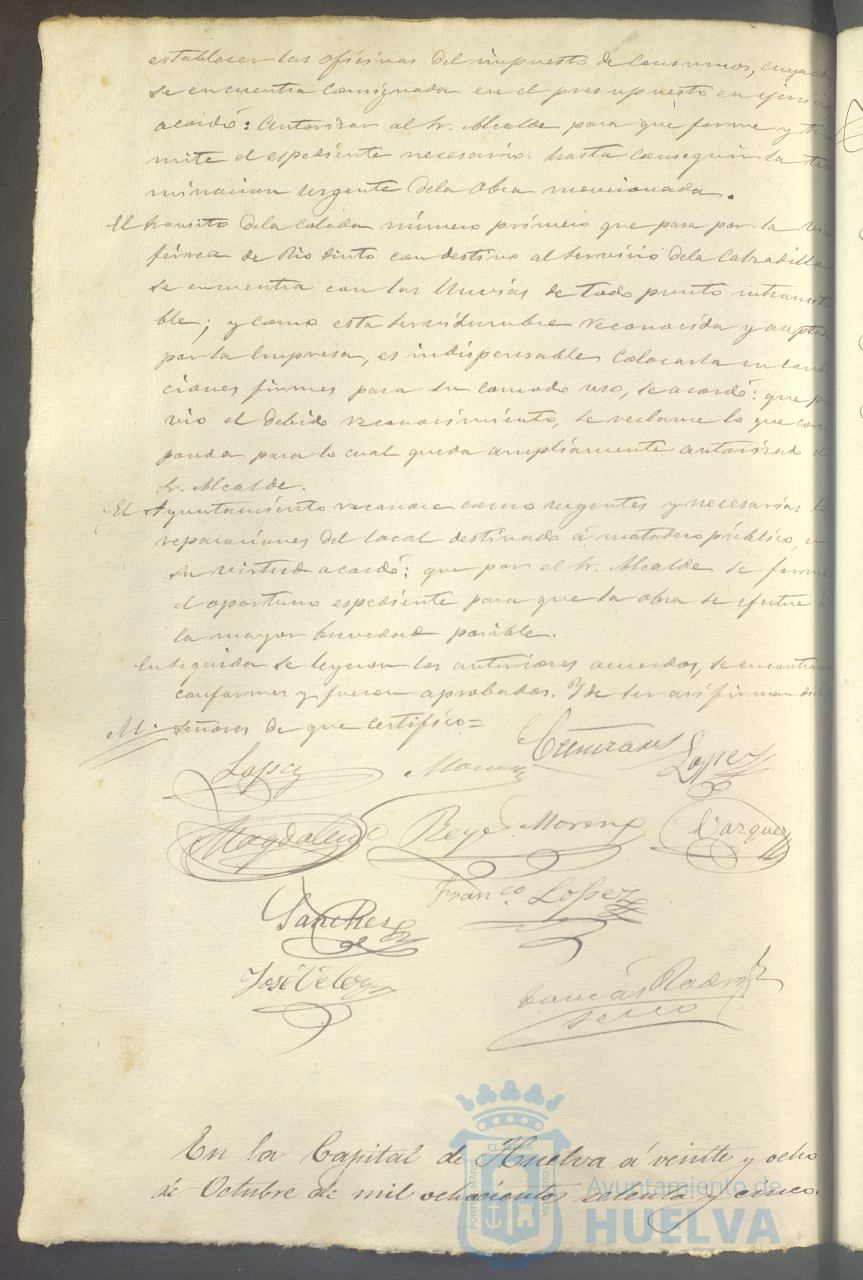 establecer las oficinas del impuesto de Consumos, cuya
se encuentra consignada en el presupuesto en
acordó: autorizar al Sr. Alcalde para que forme y tra
mite el espediente necesario hasta conseguir la ter
minacion urgente dela obra mencionada.
El transito dela Colada número primero que pasa por la via
férrea de Rio tinto con destino al servicio dela Calzadilla
se encuentra con las lluvias de todo punto intransita
ble; y como esta servidumbre reconocida y aceptada
por la Empresa, es indispensable colocarla en condi
ciones firmes para su comodo uso, se acordó: que pré
vio el debido reconocimiento, se reclame lo que corres
ponda para lo cual queda ampliamente autorizado el
Sr. Alcalde.
El Ayuntamiento reconoce como urgentes y necesarias las
reparaciones del local destinado á matadero público, en
su virtud acordó: que por el Sr. Alcalde se forme
el oportuno espediente para que la obra se efectue á
la mayor brevedad posible.
Enseguida se leyeron los anteriores acuerdos, se encontraron
conformes y fueron aprobados. Y de ser asi firman dichos
M. Señores de que certifico=
Lopez Lopez
Magdalena Reyes Moreno Vazquez
Sanchez Franco Lopez
José Velez Tomás Rodríz
Secrio
En la Capital de Huelva á veinte y ocho
de Octubre de mil ochocientos setenta y cinco.
PORTUS MARIS ET TERRAE CUSTODIA
Ayuntamiento de
HUELVA